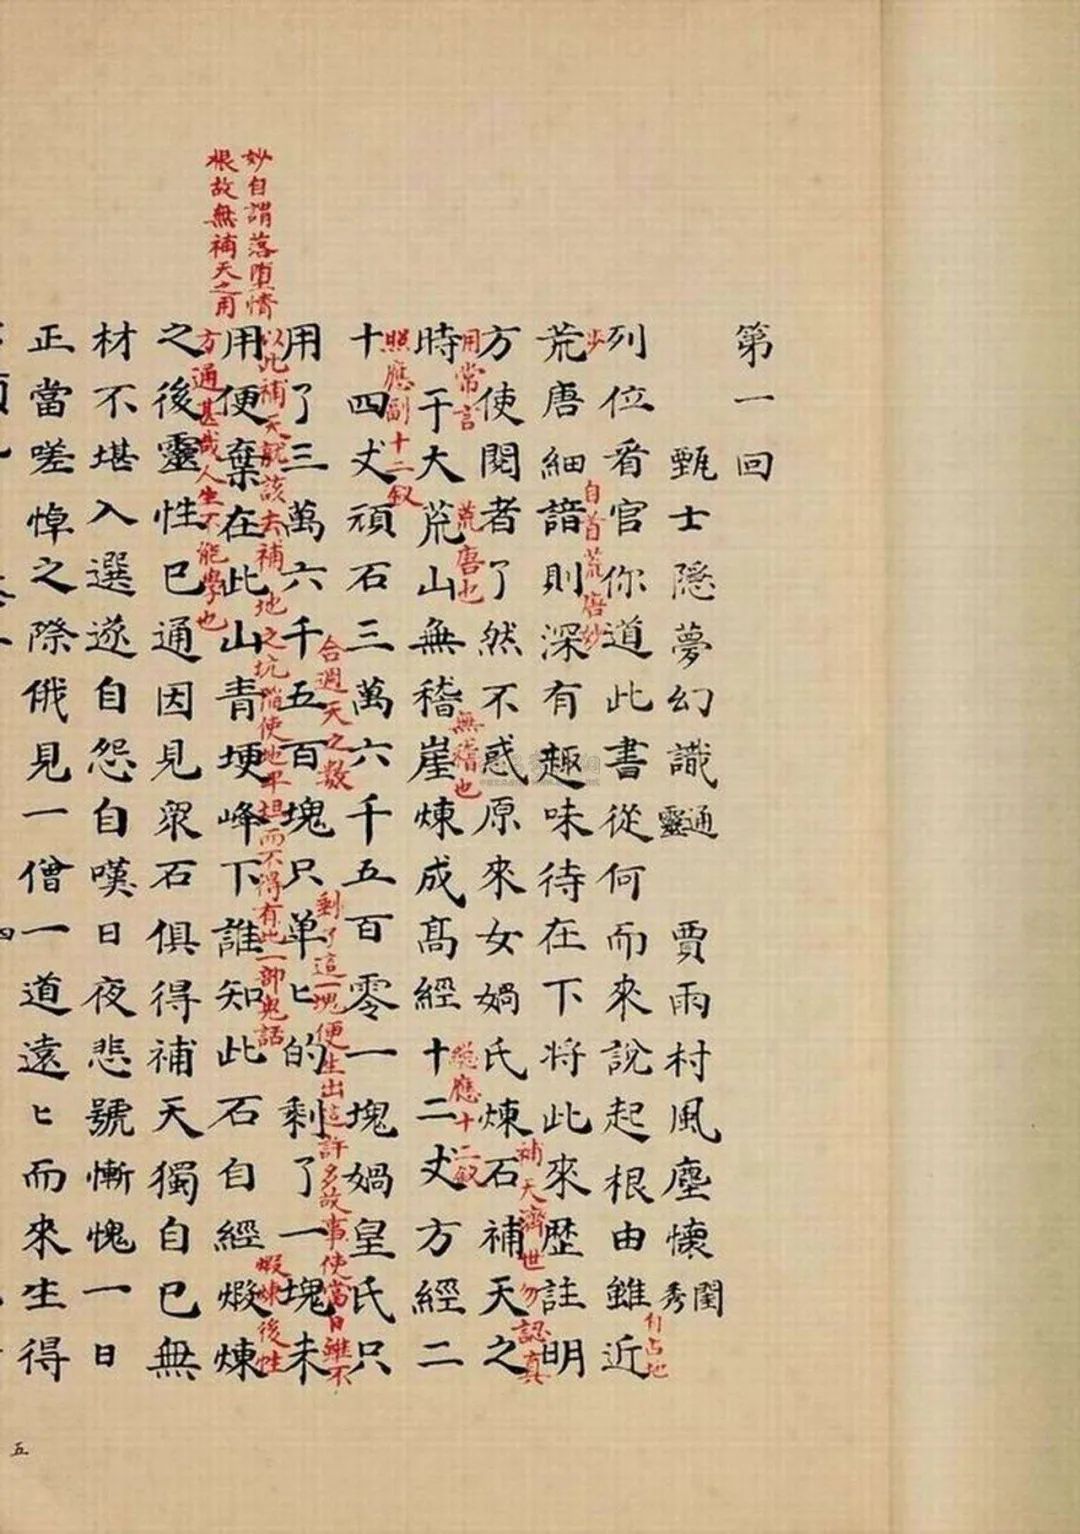 第一回
甄士隱夢幻識通靈　賈雨村風塵懷閨秀
列位看官你道此書從何而來說起根由雖近
自占地
步
荒唐細諳則深有趣味待在下將此來歷註明
自首荒唐妙
方使閱者了然不惑原來女媧氏煉石補天之
補天濟世勿認真
用常言
時于大荒山無稽崖煉成高經十二丈方經二
荒唐也
無稽也
總應十二釵
十四丈頑石三萬六千五百零一塊媧皇氏只
照應副十二釵
合週天之數
用了三萬六千五百塊只单匕的剩了一塊未
剩了這一塊便生出這許多故事使當日雖不
以此補天就該去補地之坑陷使地平坦而不得有此一部鬼話
用便棄在此山青埂峰下誰知此石自經煅煉
妙自謂落堕情
根故無補天之用
煅煉後性
方通甚哉人生不能學也
之後靈性已通因見眾石俱得補天獨自己無
材不堪入選遂自怨自嘆日夜悲號慚愧一日
正當嗟悼之際俄見一僧一道遠匕而來生得
五